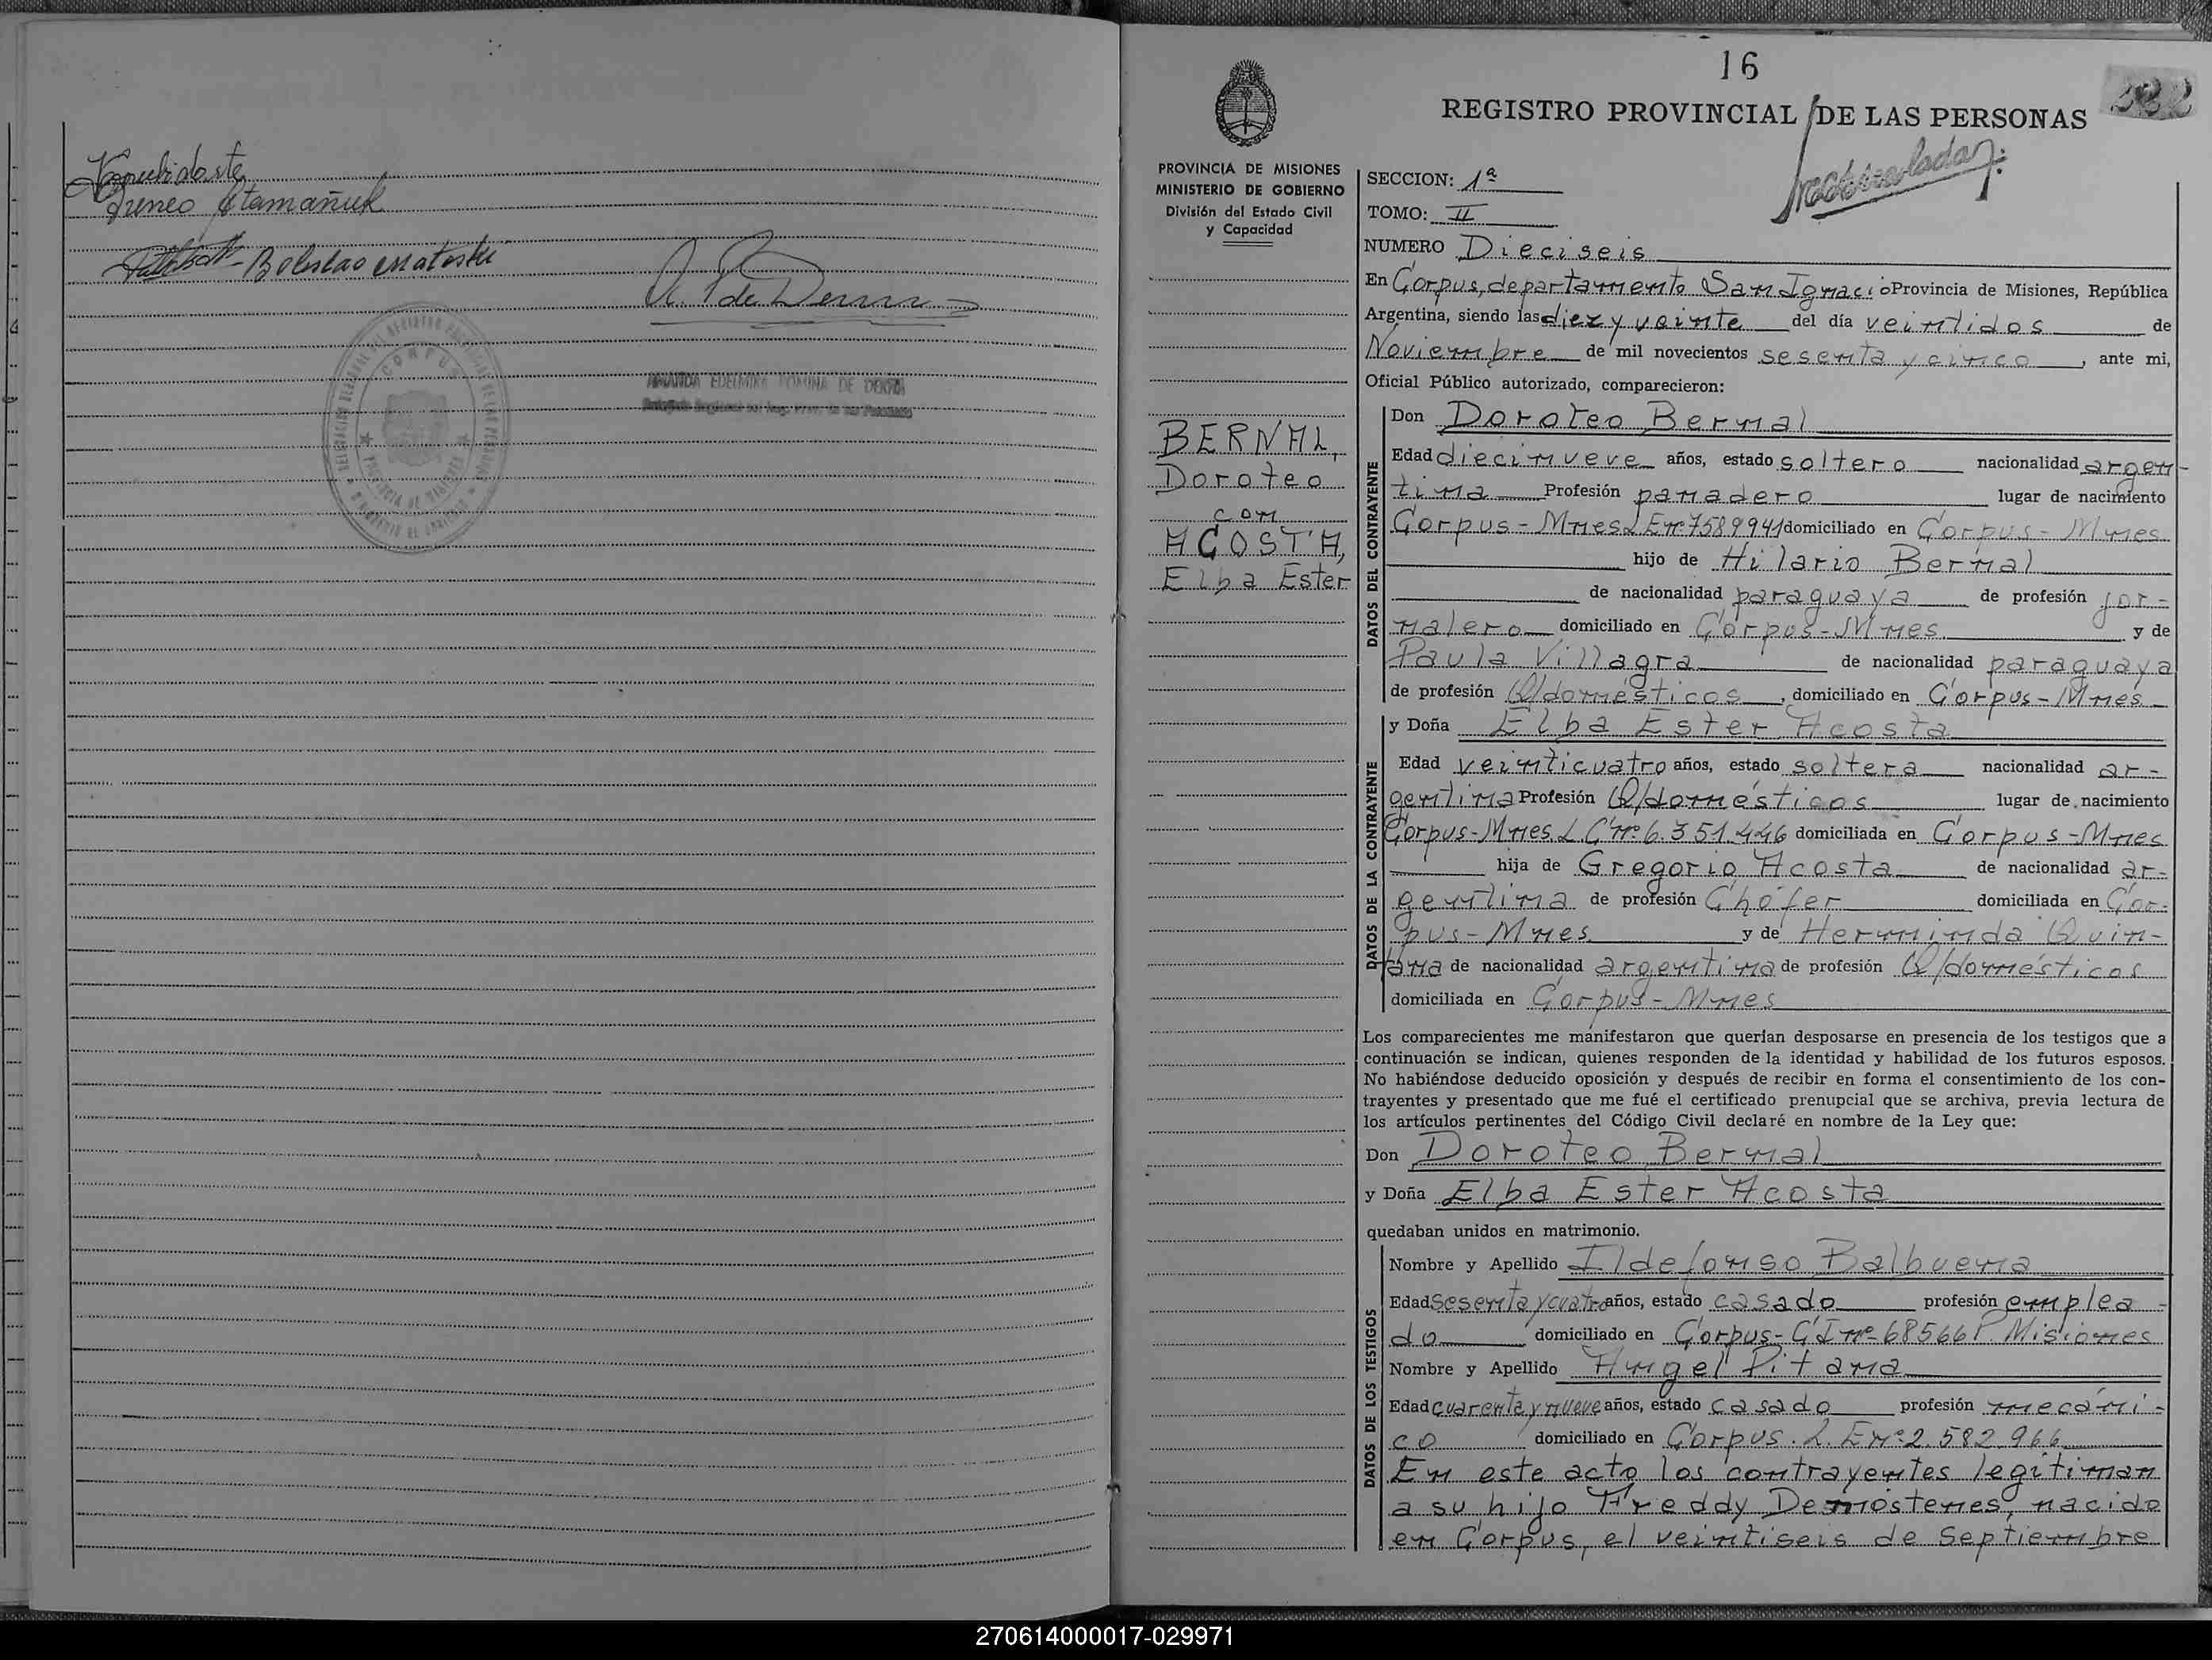 Ireneo Atamañuk
Boleslao Matoski
CORPUS
PROVINCIA DE MISIONES
16
REGISTRO PROVINCIAL DE LAS PERSONAS
PROVINCIA DE MISIONES
MINISTERIO DE GOBIERNO
División del Estado Civil
y Capacidad
BERNAL,
Doroteo
con
ACOSTA,
Elba Ester
SECCION: 1ª
TOMO: II
NUMERO Dieciseis
En Corpus, departamento San Ignacio Provincia de Misiones, República
Argentina, siendo las diez y veinte del día veintidos de
Noviembre de mil novecientos sesenta y cinco, ante mi,
Oficial Público autorizado, comparecieron:
DATOS DEL CONTRAYENTE
Don Doroteo Bernal
Edad diecinueve años, estado soltero nacionalidad argen-
tina Profesión panadero lugar de nacimiento
Corpus-Mnes L.Enº 7589941 domiciliado en Corpus-Mnes
hijo de Hilario Bernal
de nacionalidad paraguaya de profesión jor-
nalero domiciliado en Corpus-Mnes. y de
Paula Villagra de nacionalidad paraguaya
de profesión Q/domésticos, domiciliado en Corpus-Mnes
DATOS DE LA CONTRAYENTE
y Doña Elba Ester Acosta
Edad veinticuatro años, estado soltera nacionalidad ar-
gentina Profesión Q/domésticos lugar de nacimiento
Corpus-Mnes. L.C nº 6.351.446 domiciliada en Corpus-Mnes
hija de Gregorio Acosta de nacionalidad ar-
gentina de profesión Chófer domiciliada en Cor-
pus-Mnes y de Herminda Quin-
tana de nacionalidad argentina de profesión Q/domésticos
domiciliada en Corpus-Mnes
Los comparecientes me manifestaron que querían desposarse en presencia de los testigos que a
continuación se indican, quienes responden de la identidad y habilidad de los futuros esposos.
No habiéndose deducido oposición y después de recibir en forma el consentimiento de los con-
trayentes y presentado que me fué el certificado prenupcial que se archiva, previa lectura de
los artículos pertinentes del Código Civil declaré en nombre de la Ley que:
Don Doroteo Bernal
y Doña Elba Ester Acosta
quedaban unidos en matrimonio.
DATOS DE LOS TESTIGOS
Nombre y Apellido Ildefonso Balbuena
Edad sesenta y cuatro años, estado casado profesión emplea-
do domiciliado en Corpus-C I nº 68566 P. Misiones
Nombre y Apellido Angel Pitana
Edad cuarenta y nueve años, estado casado profesión mecáni-
co domiciliado en Corpus. L. Enº 2.582.966
En este acto los contrayentes legitiman
a su hijo Freddy Demóstenes, nacido
en Corpus, el veintiseis de Septiembre
270614000017-029971